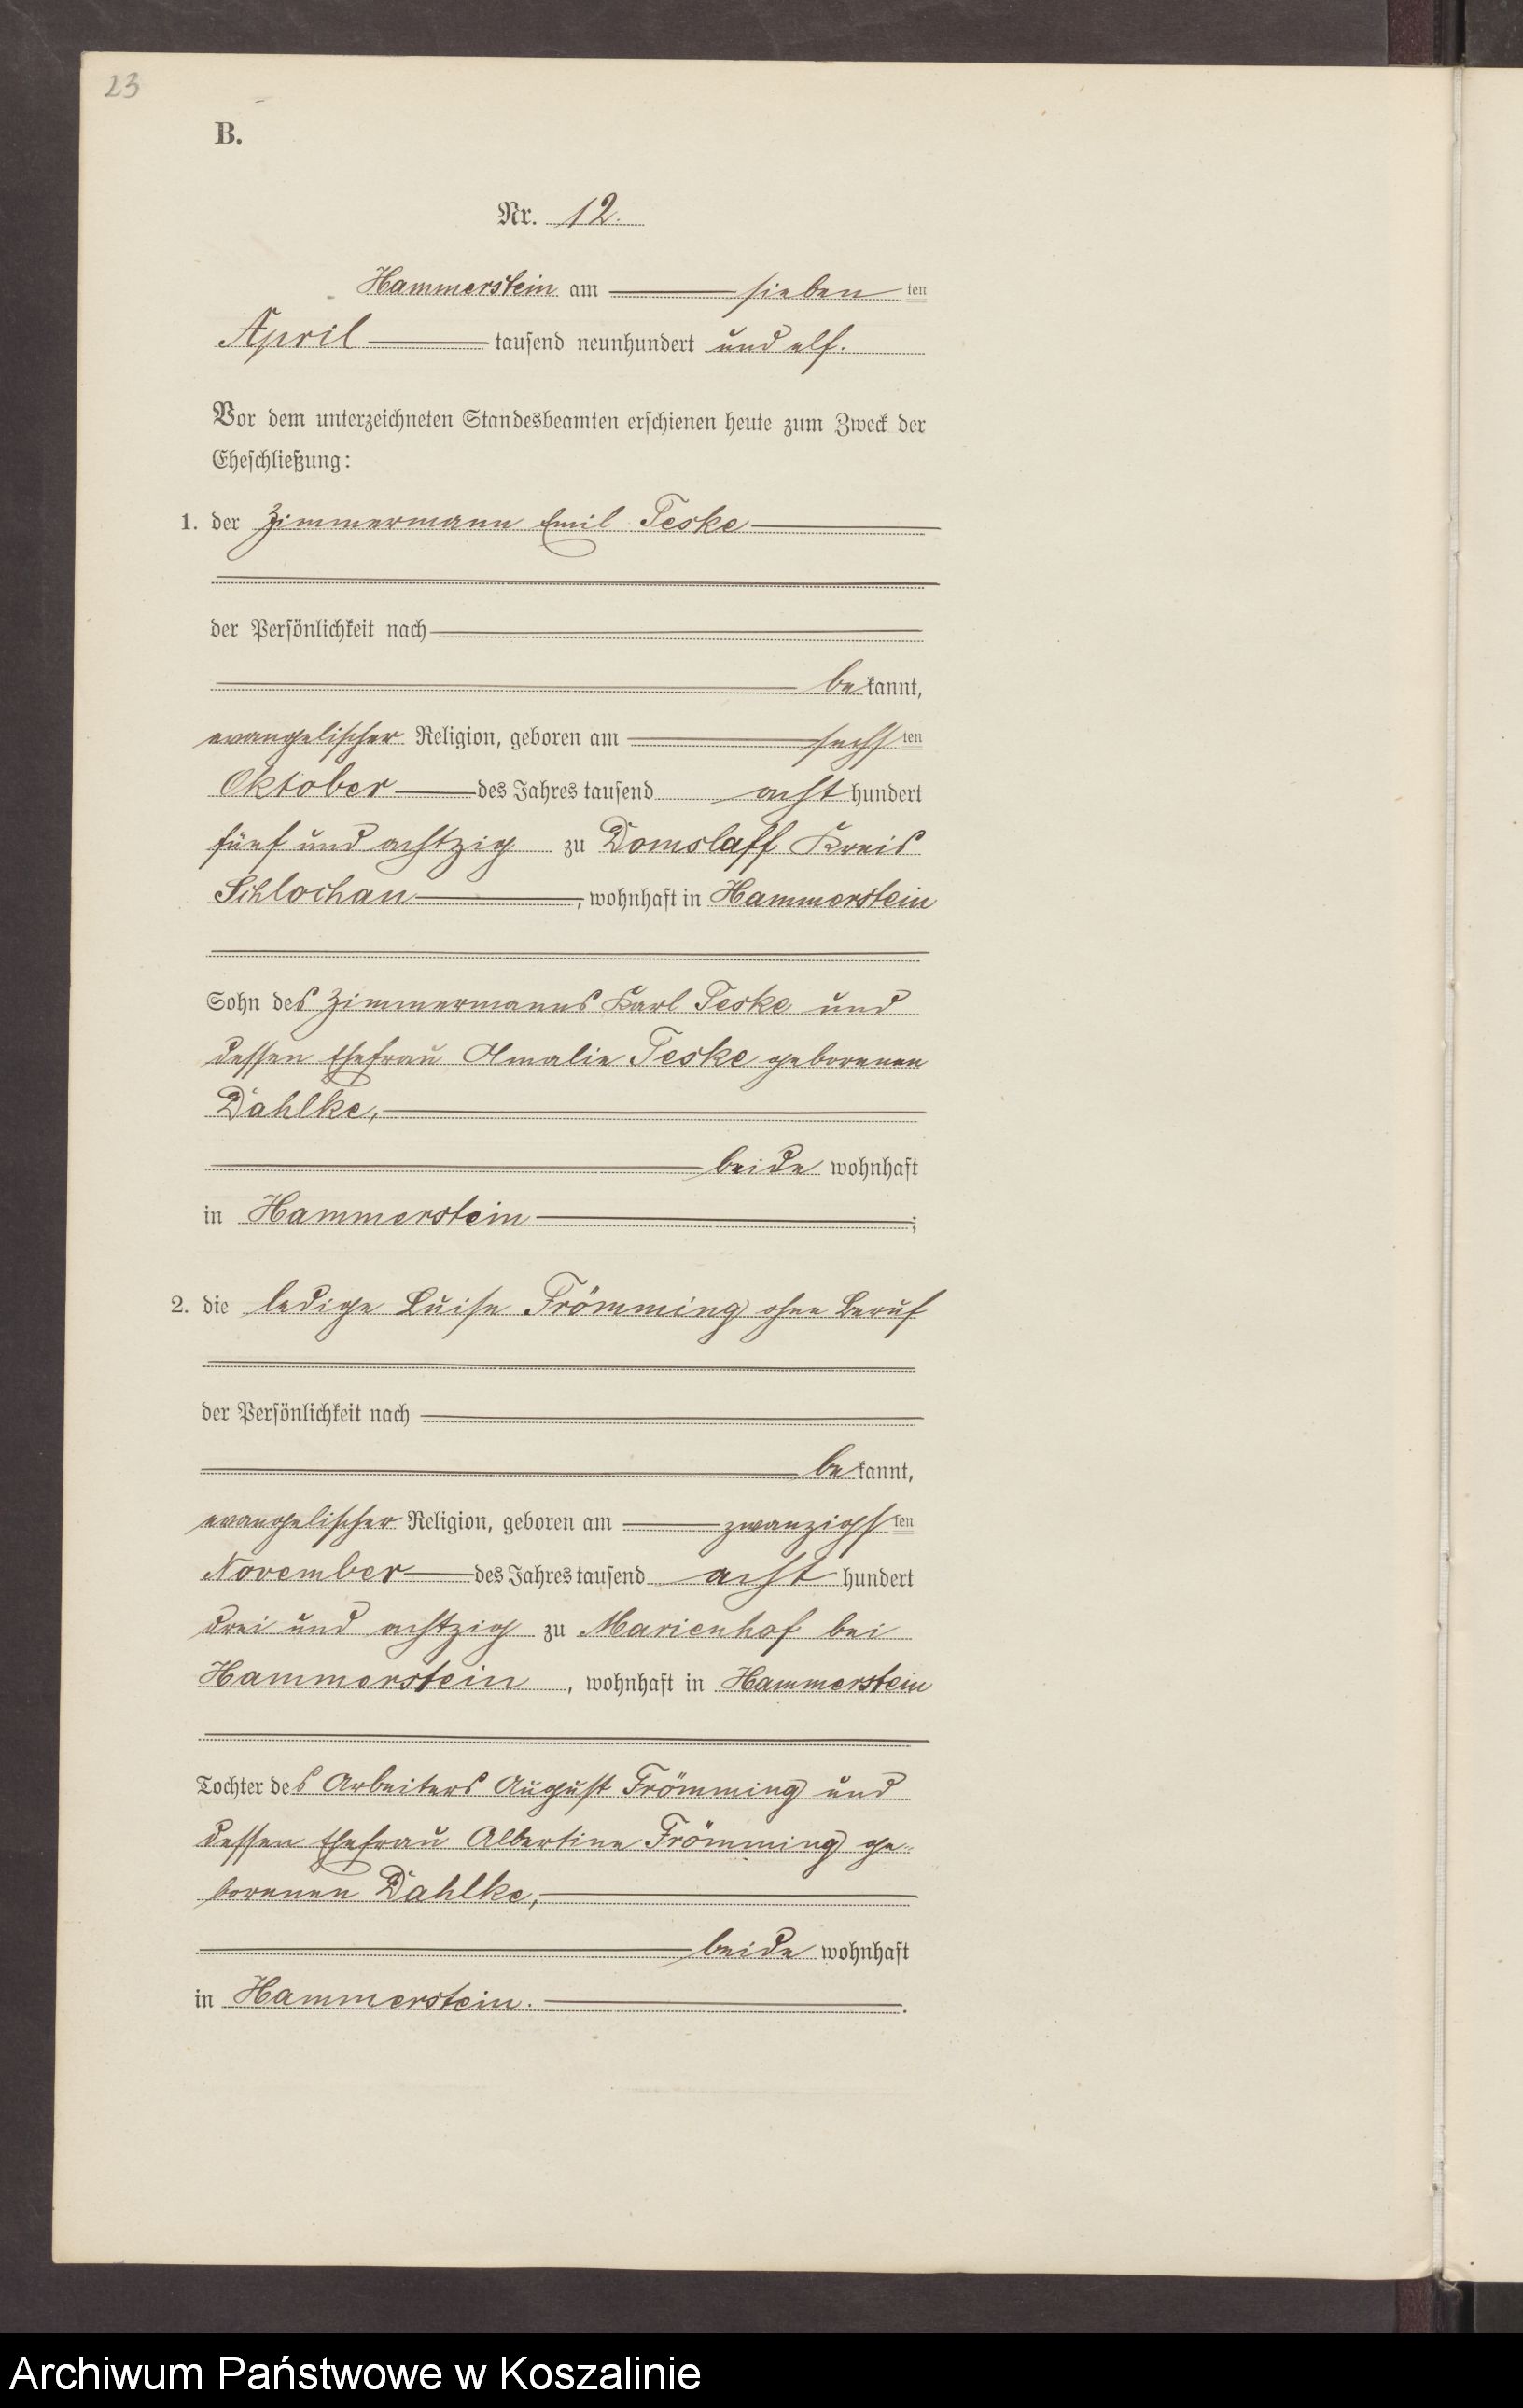 23
B.
Nr. 12.
Hammerstein am sieben ten
April tausend neunhundert und elf.
Vor dem unterzeichneten Standesbeamten erschienen heute zum Zweck der
Eheschließung:
1. der Zimmermann Emil Teske
der Persönlichkeit nach
bekannt,
evangelischer Religion, geboren am sechsten
Oktober des Jahres tausend acht hundert
fünf und achtzig zu Domslaff Kreis
Schlochau, wohnhaft in Hammerstein
Sohn des Zimmermanns Karl Teske und
dessen Ehefrau Amalie Teske geborenen
Dahlke,
beide wohnhaft
in Hammerstein;
2. die ledige Luise Frömming ohne Beruf
der Persönlichkeit nach
bekannt,
evangelischer Religion, geboren am zwanzigsten
November des Jahres tausend acht hundert
drei und achtzig zu Marienhof bei
Hammerstein, wohnhaft in Hammerstein
Tochter des Arbeiters August Frömming und
dessen Ehefrau Albertine Frömming ge-
borenen Dahlke,
beide wohnhaft
in Hammerstein.
Archiwum Państwowe w Koszalinie